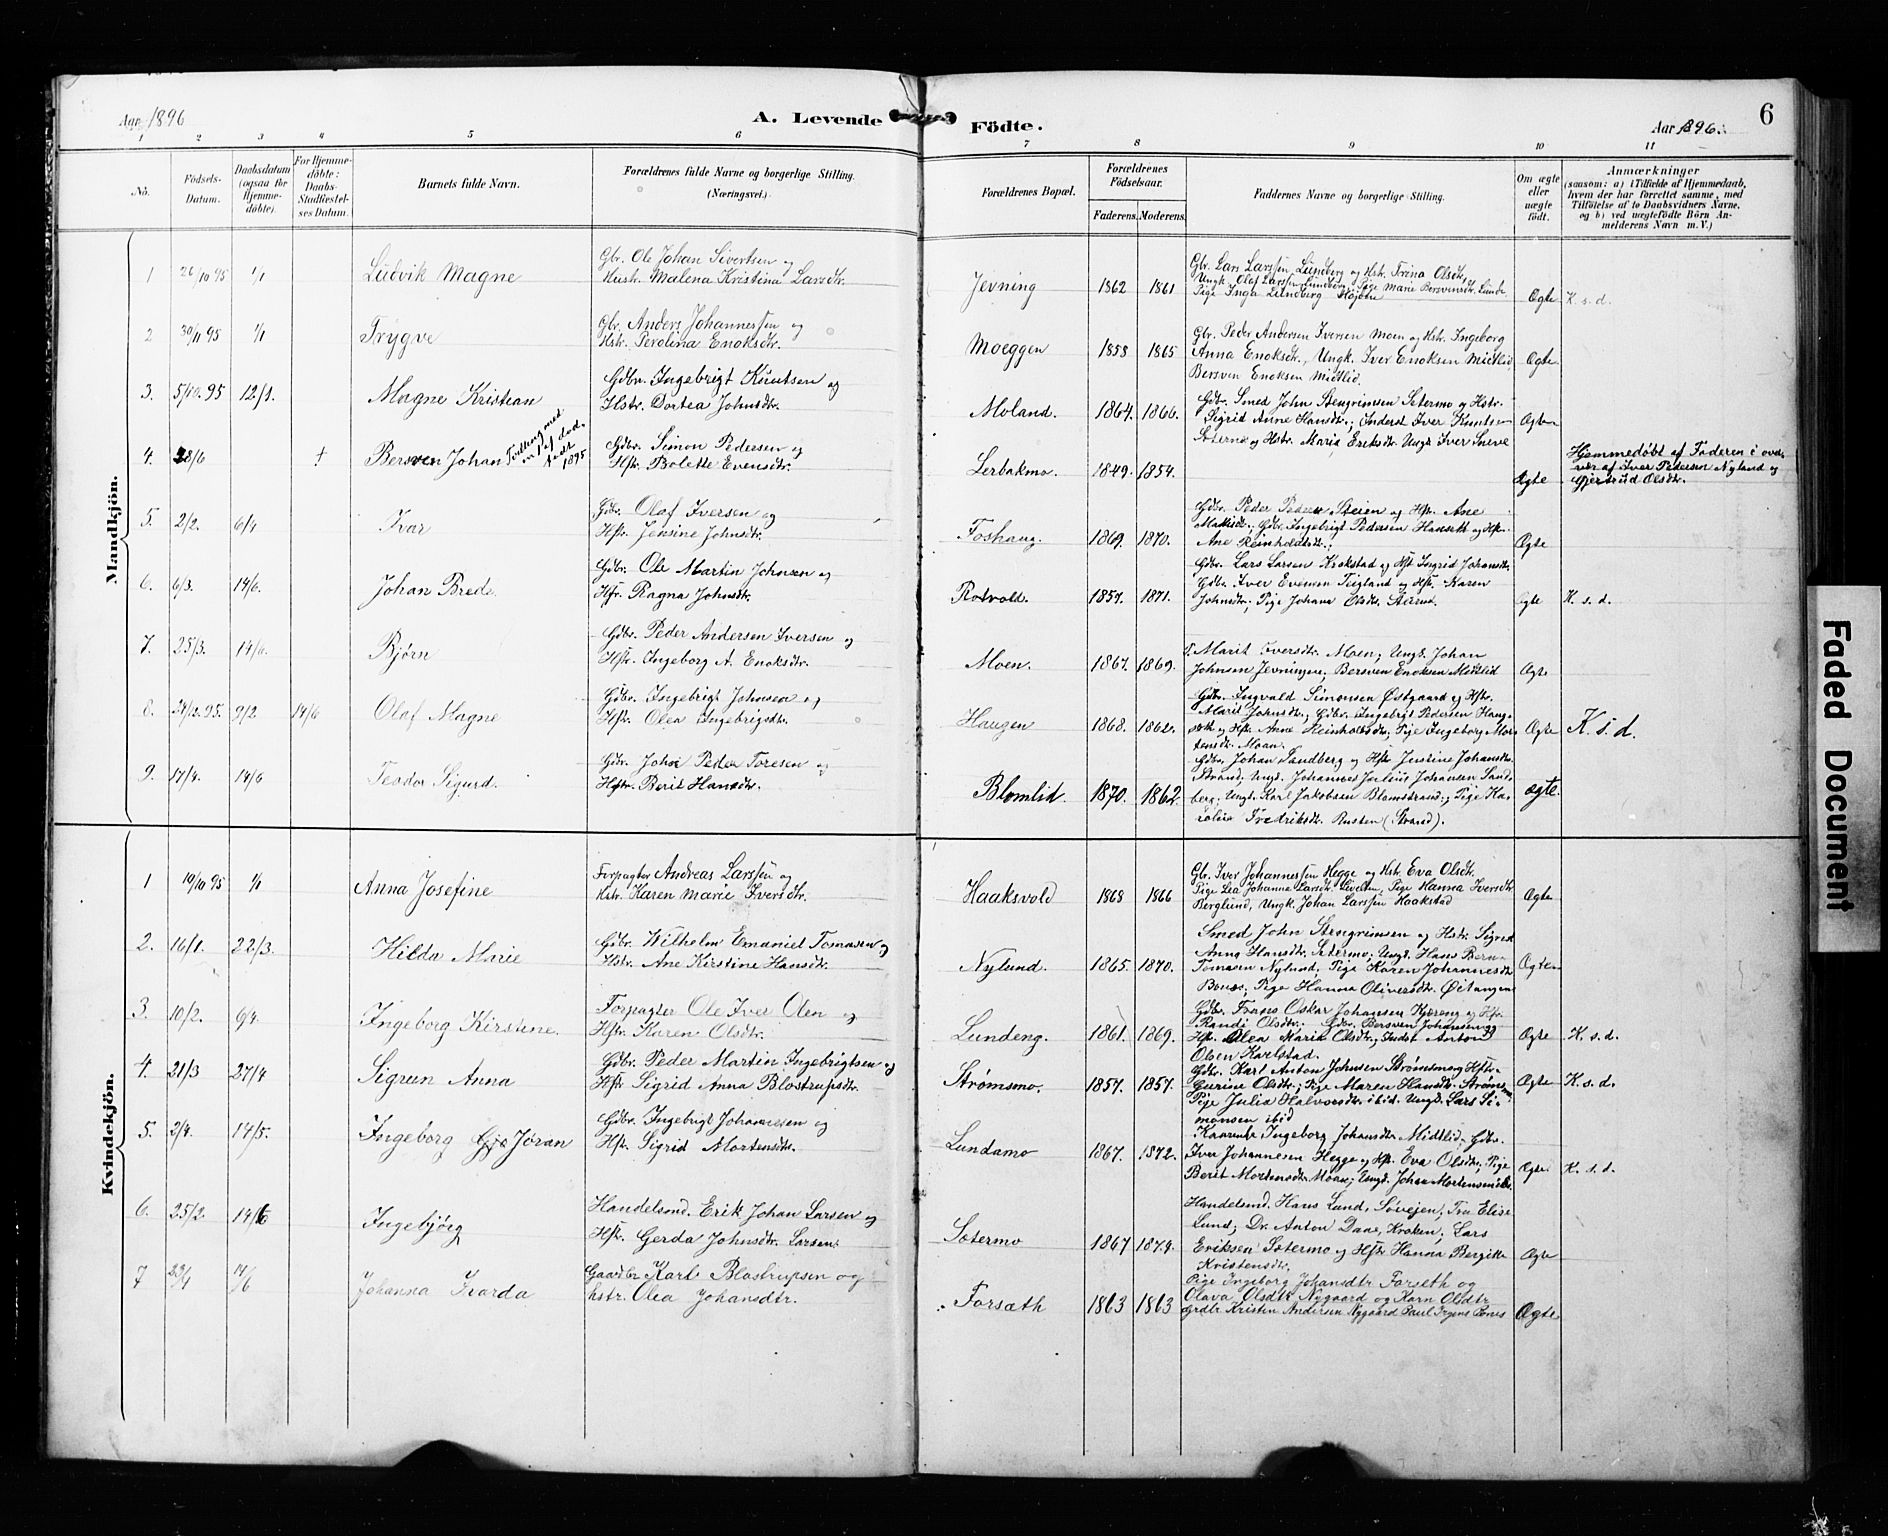 Aar 1896
A. Levende
Födte.
Aar 1896.
6
1 2 3 4 5 6
7 8 9 10 11
No.
Födsels-
Datum.
Daabsdatum
(ogsaa for
Hjemme-
döbte).
For Hjemme-
döbte:
Daabs-
Stadfæstel-
ses Datum.
Barnets fulde Navn.
Forældrenes fulde Navne og borgerlige Stilling.
(Næringsvei.)
Forældrenes Bopæl.
Forældrenes
Födselsaar.
Faderens. Moderens.
Faddernes Navne og borgerlige Stilling.
Om ægte
eller
uægte
födt.
Anmærkninger
(saasom: a) i Tilfælde af Hjemmedaab,
hvem der har forrettet samme, med
Tilföielse af to Daabsvidners Navne,
og b) ved uægtefödte Börn An-
melderens Navn m. V.)
Mandkjön.
1 26/10 95 1/1 Ludvik Magne
Gbr. Ole Johan Sivertsen og
Hustr. Malena Kristina Larsdtr.
Jevning 1862 1861
Gbr. Lars Larssen Lundberg og Hstr. Trina Olsdtr.
Ungk Olaf Larssen Lundberg, Pige Marie Bersvensdtr. Lunde
Pige Inga Lundberg
Ægte K. s. d.
2 30/11 95 1/1 Trygve
Gbr. Anders Johannessen og
Hstr. Perolina Enoksdtr.
Moeggen 1858 1865
Gbr. Peder Andersen Iversen Moen og Hstr. Ingeborg
Anna Enoksdtr., Ungk. Iver Enoksen Midtlid
Bersven Enoksen Midtlid.
Ægte
3. 5/10. 95 12/1. Magne Kristian
Gdbr. Ingebrigt Knutsen og
Hstr. Dortea Johnsdtr.
Moland. 1864. 1866.
Gdbr. Smed John Stengrimsen Setermo og Hstr.
Sigrid Anne Hansdtr.; Inderst Iver Knutsen
og Hstr. Maria Eriksdtr. Ungk. Iver
4. 28/6 + Bersven Johan Tvilling med
en af død.
født
1895
Gdbr. Simon Pedersen og
Hstr. Bolette Evensdtr.
Lerbakmo. 1849. 1854.
Ægte
Hjemmedöbt af Faderen i over
vær af Iver Pedersen Nyland og
Gjertrud Olsdtr.
5. 2/2. 6/4 Ivar
Gdbr. Olaf Iversen og
Hstr. Jensine Johnsdtr.
Foshaug. 1869. 1870.
Gdbr. Peder Pedersen Steien og Hstr. Ane
Gdbr. Ingebrigt Pedersen og Hstr.
Ane Reinholdtsdtr.
Ægte
6. 6/3. 14/6. Johan Brede
Gdbr. Ole Martin Johnsen og
Hstr. Ragna Johnsdtr.
Rotvold. 1857. 1871.
Gdbr. Lars Larsen Krokstad og Hst Ingrid Johansdtr.
Gdbr. Iver Evensen Teigland og Hstr. Karen
Johnsdtr.; Pige Johana Olsdtr.
Ægte K. s. d.
7. 25/3. 14/6. Bjørn
Gdbr. Peder Andersen Iversen og
Hstr. Ingeborg A. Enoksdtr.
Moen. 1867. 1869.
P. Marit Iversdtr. Moen; Ungk. Johan
Johnsen Jevningen, Bersven Enoksen Midtlid
Ægte
8. 24/12. 95. 9/2 14/6 Olaf Magne
Gdbr. Ingebrigt Johnsen og
Hstr. Olea Ingebrigtsdtr.
Haugen 1868. 1862.
Gdbr. Ingvald Simonsen Østgaard og Hstr.
Marit Johnsdtr.; Gdbr. Ingebrigt Pedersen Haug-
og Hstr. Anne Reinholdtsdtr.; Pige Ingeborg Mor-
tensdtr. Moan.
Ægte K. s. d.
9. 17/4. 14/6 Teodor Sigurd.
Gdbr. John Peder Toresen og
Hstr. Berit Hansdtr.
Blomlid. 1870. 1862.
Gdbr. Johan Sandberg og Hstr Justine Johansdtr.
Strand; Ungk. Johannes Julius Johansen Sand-
berg; Ungk. Karl Jakobsen Blomstrand; Pige Ka-
Fredriksdtr. Rusten (Strand).
ægte.
Kvindekjön.
1 19/10 95 1/1 Anna Josefine
Forpagter Andreas Larssen og
Hstr. Karen Marie Iversdtr.
Haaksvold 1868 1866
Gbr. Iver Johannessen Hegge og Hstr. Eva Olsdtr.
Pige Lea Johanna Larsdtr., Pige Hanna Iversdtr.
Berglund, Ungk. Johan Larssen Haakstad
Ægte
2. 16/1. 22/3. Hilda Marie
Gdbr. Wilhelm Emaniel Tomasen og
Hstr. Ane Kirstine Hansdtr.
Nylund. 1865. 1870.
Smed John Stengrimsen og Hstr. Sigrid
Anna Hansdtr. Setermo; Ungk. Hans
Tomasen Nylund, Pige Karen Johannesdtr.
Pige Hanna Oliversdtr. Øitangen
3. 10/2. 6/4. Ingeborg Kirstine.
Forpagter Ole Iver Olen og
Hstr. Karen Olsdtr.
Lundeng. 1861. 1869.
Gdbr. Frans Oskar Johansen Kjereng og Hstr.
Randi Olsdtr. Gdbr. Bersven Johansen og
Hstr. Olea Maria Olsdtr.; Indst Anton
Olsen Karlstad.
Ægte K. s. d.
4. 21/3 27/4 Sigrun Anna
Gdbr. Peder Martin Ingebrigtsen og
Hstr. Sigrid Anna Blostrupsdtr.
Strømsmo. 1857. 1857.
Gdbr. Karl Anton Johnsen Strømsmo og Hstr.
Gurine Olsdtr.; Pige Maren Hansdtr. Strømsmo
Pige Julia Halvorsdtr. ibid. Ungk. Lars Si-
monsen ibid
Ægte K. s. d.
5. 2/4. 14/5. Ingeborg Jøran
Gdbr. Ingebrigt Johannesen og
Hstr. Sigrid Mortensdtr.
Lundamo 1867. 1872.
Ingeborg Johansdtr Midtlid; Gdbr.
Iver Johannesen Hegge og Hstr. Eva Olsdtr.; Pige
Berit Mortensdtr. Moan; Ungk. Johan Mortensen ibid.
Ægte. K. s. d.
6. 25/2. 14/6 Ingebjørg
Handelsmd. Erik Johan Larsen og
Hstr. Gerda Johnsdtr. Larsen.
Setermo 1867 1874.
Handelsmd. Hans Lund, Søveien; Fru Elise
Lund; Dr. Anton Daae, Kroken; Lars
Eriksen Setermo og Hstr Hanna Bergitte
Kristensdtr.
Ægte
7 23/4 14/6 Johanna Ivarda
Gaardbr Karl Blostrupsen og
hstr. Olea Johansdtr.
Forsæth 1863 1863
Pige Ingeborg Johansdtr Forseth og
Olava Olsdtr Nygaard og Karn Olsdtr
Grdbr Kristen Andersen Nygaard Paul
Ægte
Faded Document